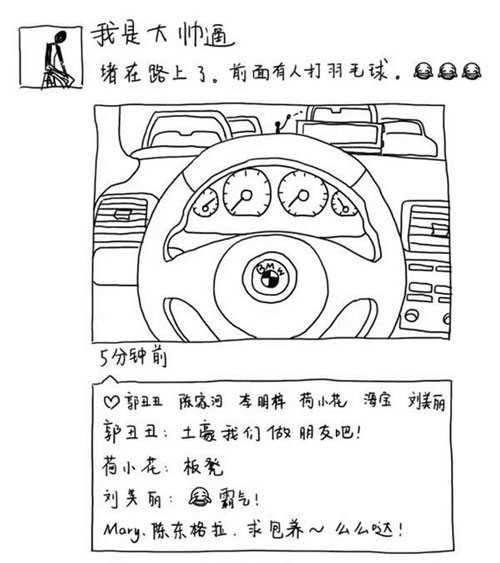 我是大帅逼
堵在路上了。前面有人打羽毛球。😂😂😂
BMW
5分钟前
♡郭丑丑 陈家河 李明梓 荷小花 海宝 刘美丽
郭丑丑:土豪我们做朋友吧!
荷小花:板凳
刘美丽:😂霸气!
Mary.陈东格拉.求包养~么么哒!